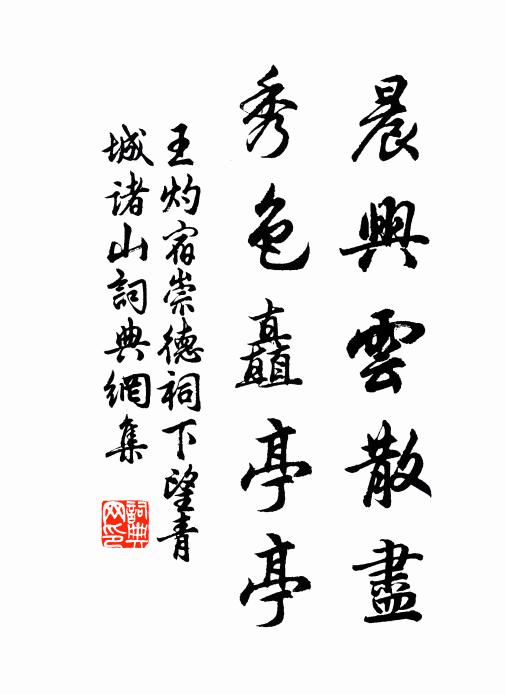 晨興雲散盡
秀色矗亭亭
王灼宿崇德祠下望青
城诸山詞典網集
詞典网印